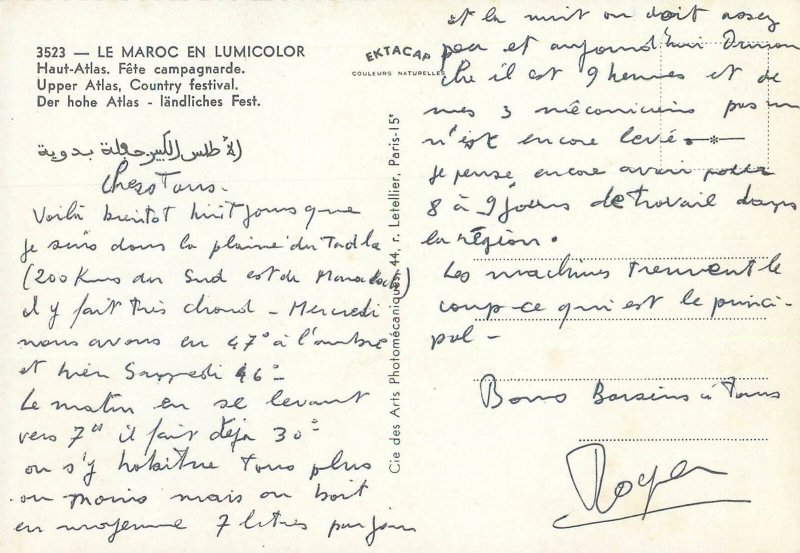 3523 — LE MAROC EN LUMICOLOR
Haut-Atlas. Fête campagnarde.
Upper Atlas, Country festival.
Der hohe Atlas - ländliches Fest.
الأطلس الكبير حفلة بدوية
EKTACAP
COULEURS NATURELLES
Chers Tous.
Voilà bientot huit jours que
je suis dans la plaine du Tadla
(200 Kms du Sud est de Marrakech)
il y fait très chaud - Mercredi
nous avons eu 47° à l'ombre
et hier Samedi 46°-
Le matin en se levant
vers 7h il fait déjà 30°
on s'y habitue tous plus
ou moins mais on boit
en moyenne 7 litres par jour
Cie des Arts Photomécaniques, 44, r. Letellier, Paris-15e
et la nuit on doit assez
peu et aujourd'hui Diman
che il est 9 heures et de
mes 3 mécaniciens pas un
n'est encore levé.
je pense encore avoir pour
8 à 9 jours de travail dans
la région.
Les machines tiennent le
coup-ce qui est le princi-
pal-
Bons Baisers à Tous
Roger